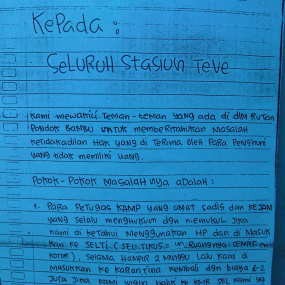 Kepada :
Seluruh Stasiun Teve
Kami mewakili Teman-teman yang ada di dlm Rutan
Pondok Bambu untuk memberitahukan masalah
ketidakadilan Hak yang di Terima oleh Para Penghuni
yang tidak memiliki uang.
Pokok-Pokok Masalahnya adalah :
1. Para Petugas KAMP yang amat sadis dan kejam
yang selalu menghukum dgn memukul Jika
kami di ketahui menggunakan HP dan di Masuk
kan ke SELTI (SELTIKUS = Ruangnya
kotor), selama Hampir 2 minggu lalu kami di
masukkan ke karantina kembali dgn biaya 1-2
Juta Jika kami ingin